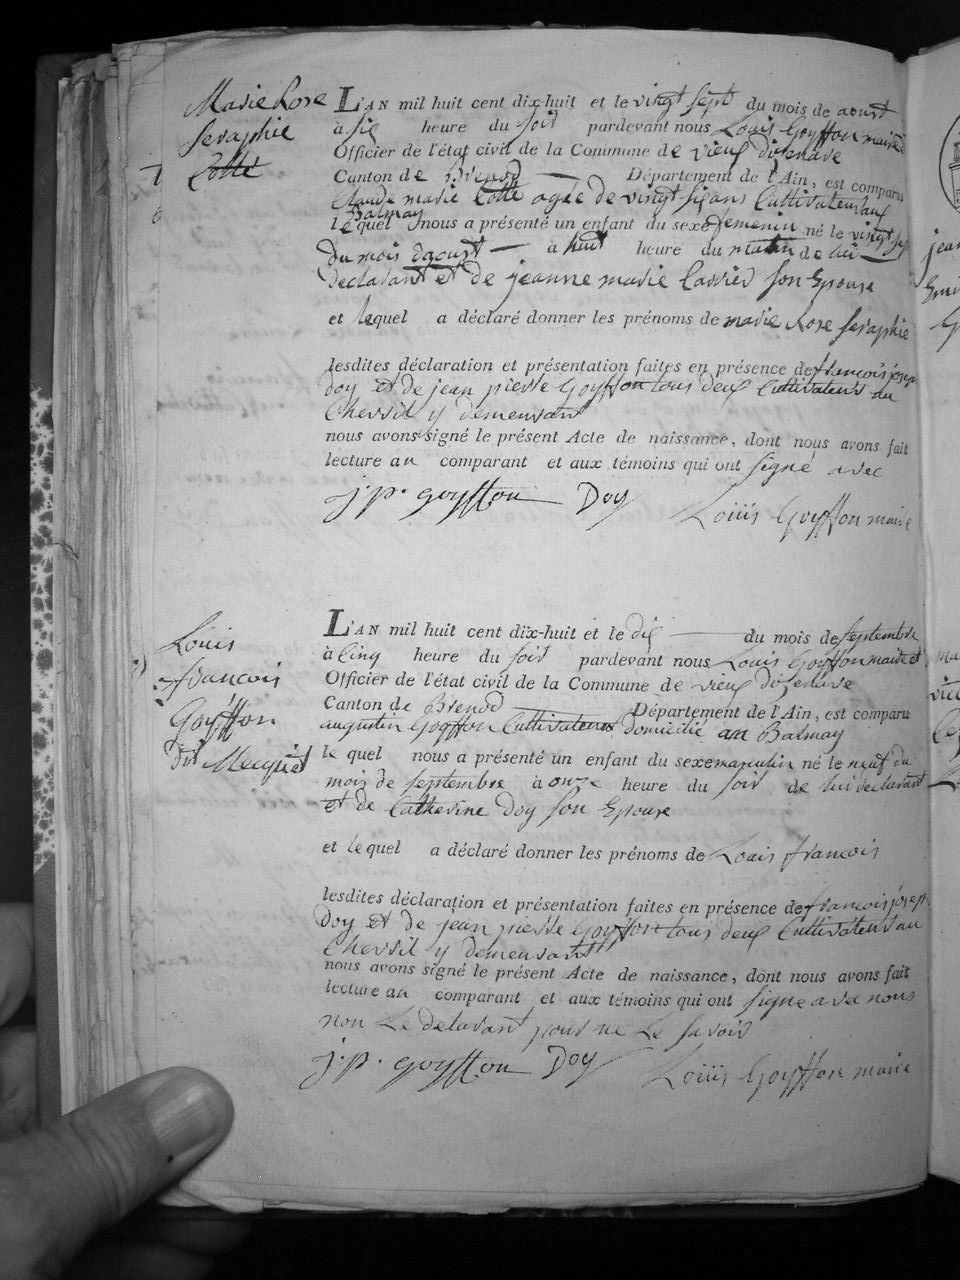 Marie Rose
Seraphie
Cotte
L'AN mil huit cent dix-huit et le vingt sept du mois de aoust
à six heure du soir pardevant nous Louis Goyffon maire
Officier de l'état civil de la Commune de vieux dizenave
Canton de Brenod Département de l'Ain, est comparu
Claude marie Cotte agée de vingt six ans Cultivateur au
Balmay
le quel nous a présenté un enfant du sexe femenin né le vingt sept
du mois daoust à huit heure du matin de lui
declarant et de jeanne marie Carrier son Epouse
et lequel a déclaré donner les prénoms de marie Rose Seraphie
lesdites déclaration et présentation faites en présence de francois josep
doy et de jean pierre Goyffon tous deux Cultivateurs au
Chevril y demeurant
nous avons signé le présent Acte de naissance, dont nous avons fait
lecture au comparant et aux témoins qui ont signé avec
j.p. goyffon Doy Louis Goyffon maire
Louis
francois
Goyffon
dit Mecquet
L'AN mil huit cent dix-huit et le dix du mois de Septembre
à Cinq heure du soir pardevant nous Louis Goyffon maire et
Officier de l'état civil de la Commune de vieux dizenave
Canton de Brenod Département de l'Ain, est comparu
augustin Goyffon Cultivateur domicilié au Balmay
le quel nous a présenté un enfant du sexe masculin né le neuf du
mois de Septembre à onze heure du soir de lui declarant
et de Catherine Doy son Epouse
et lequel a déclaré donner les prénoms de Louis francois
lesdites déclaration et présentation faites en présence de francois josep
doy et de jean pierre Goyffon tous deux Cultivateurs au
Chevril y demeurant
nous avons signé le présent Acte de naissance, dont nous avons fait
lecture au comparant et aux témoins qui ont signe avec nous
non Le delarant pour ne Le savoir
j.p. goyffon Doy Louis Goyffon maire